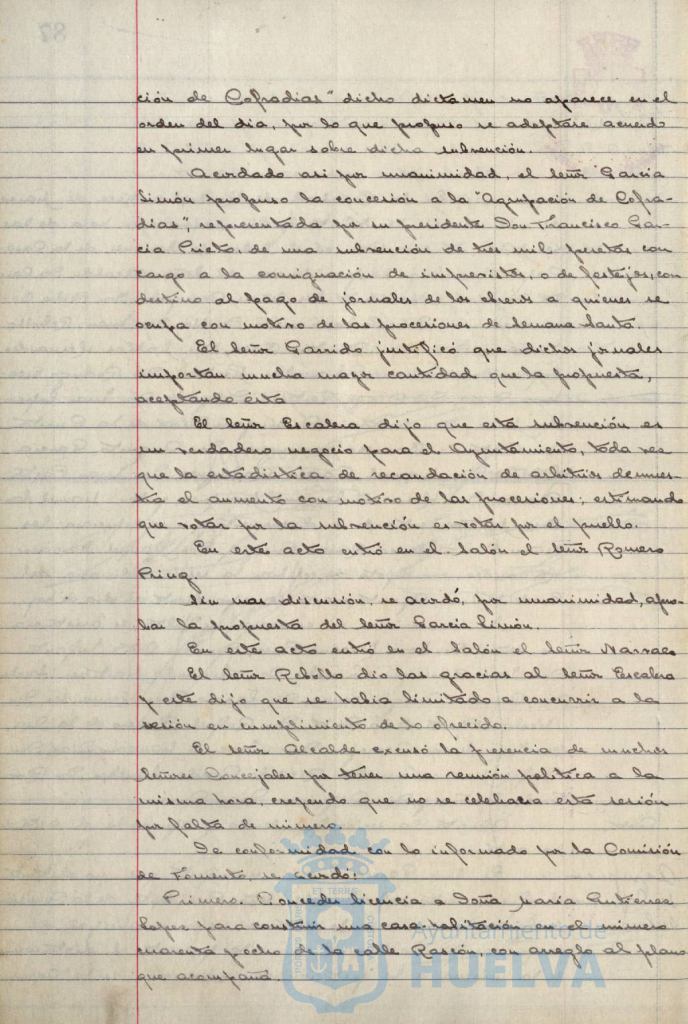 ción de Cofradias" dicho dictamen no aparece en el
orden del dia, por lo que propuso se adoptare acuerdo
en primer lugar sobre dicha subvención.
Acordado asi por unanimidad, el señor García
Simón propuso la concesión a la "Agrupación de Cofra-
dias", representada por su presidente Don Francisco Gar-
cia Prieto, de una subvención de tres mil pesetas con
cargo a la consignación de imprevistos, o de festejos, con
destino al pago de jornales de los obreros a quienes se
ocupa con motivo de las procesiones de Semana Santa.
El señor Garrido justificó que dichos jornales
importan mucha mayor cantidad que la propuesta,
aceptando ésta
El señor Escalera dijo que esta subvención es
un verdadero negocio para el Ayuntamiento, toda vez
que la estadistica de recaudación de arbitrios demues-
tra el aumento con motivo de las procesiones; estimando
que votar por la subvención es votar por el pueblo.
En este acto entró en el salón el señor Romero
Sin mas discusión, se acordó, por unanimidad, apro-
bar la propuesta del señor García Simón.
En este acto entró en el salón el señor
El señor Rebollo dio las gracias al señor Escalera
y este dijo que se habia limitado a concurrir a la
sesión en cumplimiento de lo ofrecido.
El señor Alcalde excusó la presencia de muchos
señores Concejales por tener una reunión politica a la
misma hora, creyendo que no se celebraria esta sesión
por falta de número.
De conformidad con lo informado por la Comisión
de Fomento, se acordó:
Primero. Conceder licencia a Doña María Gutierrez
Lopez para construir una casa habitación en el número
cuarenta y ocho de la calle Rascón, con arreglo al plano
que acompaña.
Ayuntamiento de
HUELVA